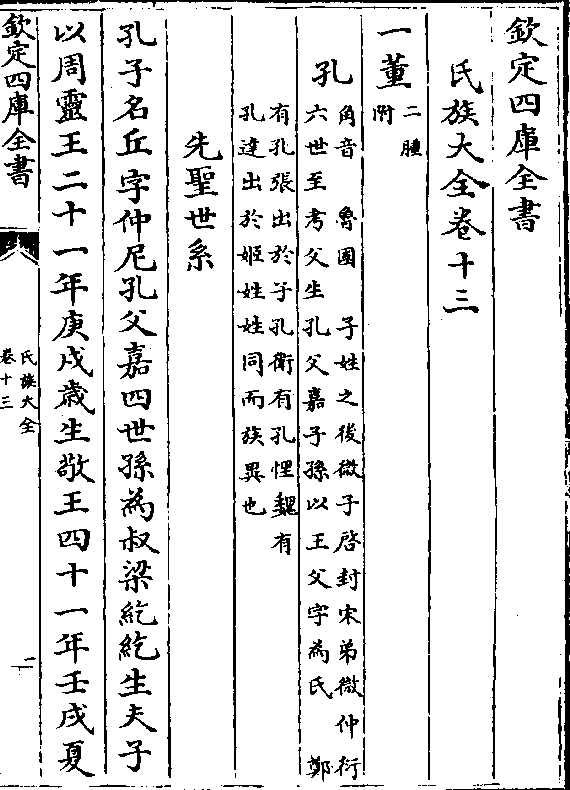 欽定四庫全書
氏族大全卷十三
一董
二腫
附
孔
角音　魯國　子姓之後微子啓封宋弟微仲衍
六世至考父生孔父嘉子孫以王父字為氏　鄭
有孔張出於子孔衛有孔悝魏有
孔達出於姬姓姓同而族異也
先聖世系
孔子名丘字仲尼孔父嘉四世孫為叔梁紇紇生夫子
以周靈王二十一年庚戌歲生敬王四十一年壬戌夏
欽定四庫全書
氏族大全
卷十三